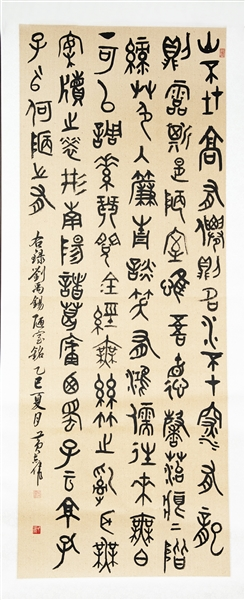 山不在高有僊則名水不在深有龍
則靈斯是陋室唯吾惪馨苔痕上階
綠艸色入簾青談笑有鴻儒往來無白
丁可以調素琴閱金經無絲竹之亂耳無
案牘之勞形南陽諸葛廬西蜀子云亭孔
子曰何陋之有
右録劉禹錫陋室銘乙巳夏月黄